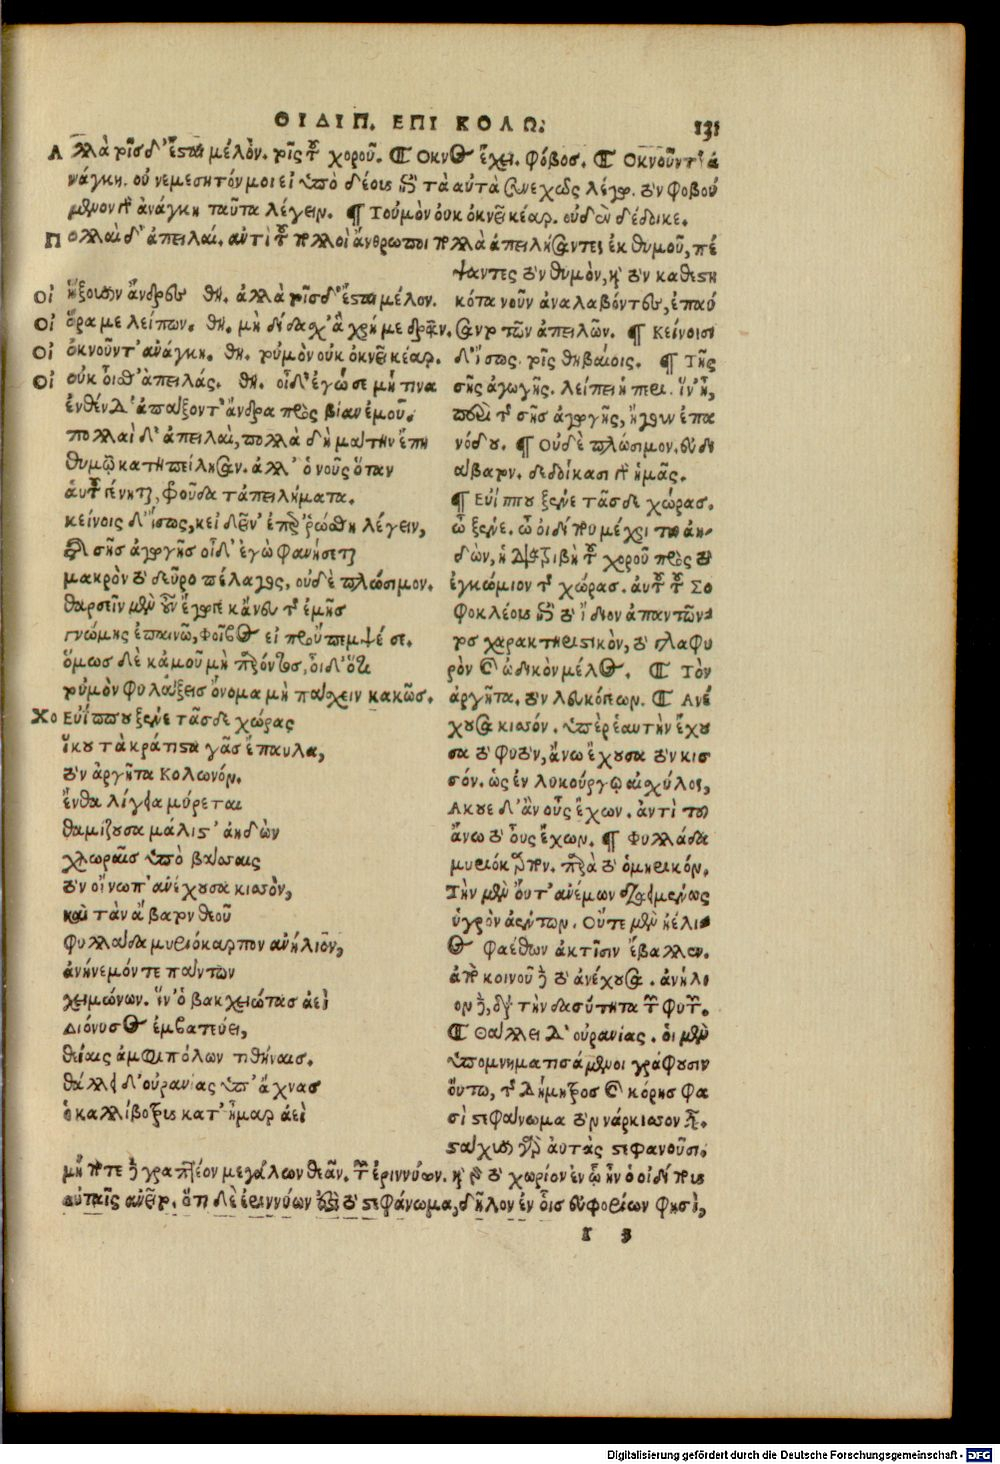 ΟΙΔΙΠ. ΕΠΙ ΚΟΛΩ. 131
Αλλὰ τοῖσδ' ἔσται μέλον. τοῖς τοῦ χοροῦ. ¶ Οκνος ἔχει. φόβος. ¶ Οκνοῦντ' ἀ
νάγκη. οὐ νεμεσητόν μοι εἰ ὑπὸ δέους τὰ αὐτὰ συνεχῶς λέγω. τὸν φοβού
μενον γὰρ ἀνάγκη ταῦτα λέγειν. ¶ Τοὐμὸν οὐκ ὀκνεῖ κέαρ. οὐδὲν δέδοικε.
Πολλαὶ δ' ἀπειλαί. ἀντὶ τοῦ πολλοὶ ἄνθρωποι πολλὰ ἀπειλήσαντες ἐκ θυμοῦ, πέ
ψαντες τὸν θυμὸν, καὶ τὸν καθεστη
κότα νοῦν ἀναλαβόντες, ἐπαύ
σαντο τῶν ἀπειλῶν. ¶ Κείνοισι
δ' ἴσως. τοῖς θηβαίοις. ¶ Τῆς
σῆς ἀγωγῆς. λείπει ἡ περι. ἵν' ᾖ,
περὶ τῆς σῆς ἀγωγῆς, ἤγουν ἐπα
νόδου. ¶ Οὐδὲ πλώσιμον. εὐδι
άβατον. δεδοίκασι γὰρ ἡμᾶς.
¶ Εὐίππου ξένε τᾶσδε χώρας.
ὦ ξένε. ὦ οἰδίπου μέχρι τοῦ ἀη-
δὼν, ἡ διατριβὴ τοῦ χοροῦ πρὸς τὸ
ἐγκώμιον τῆς χώρας. αὐτοῦ τοῦ Σο
φοκλέους τὸ ἴδιον ἀπαντῶντος
χαρακτηριστικὸν, τὸ γλαφυ
ρὸν καὶ ᾠδικὸν μέλος. ¶ Τὸν
ἀργῆτα. τὸν λευκόγεων. ¶ Ανέ
χουσα κισσόν. ὑπὲρ ἑαυτὴν ἔχου
σα τὸ φυτὸν, ἄνω ἔχουσα τὸν κισ
σόν. ὡς ἐν λυκούργῳ αἰσχύλος,
Ακουε δ' ἂν οὖς ἔχων. ἀντὶ τοῦ
ἄνω τὸ οὖς ἔχων. ¶ Φυλλάδα
μυριόκαρπον. παρὰ τὸ ὁμηρικόν.
Τὴν μὲν οὔτ' ἀνέμων διάει μένος
ὑγρὸν ἀέντων. Οὔτε μὲν ἠέλι
ος φαέθων ἀκτῖσιν ἔβαλλεν.
ἀπὸ κοινοῦ δὲ τὸ ἀνέχουσα. ἀνήλι
ον δὲ, διὰ τὴν δασύτητα τῶν φυτῶν.
¶ Θάλλει δ' οὐρανίας. οἱ μὲν
ὑπομνηματισάμενοι γράφουσιν
οὕτω, τῆς Δήμητρος καὶ κόρης φα
σὶ στεφάνωμα τὸν νάρκισσον.
στάχυσι γὰρ αὐτὰς στεφανοῦσι.
Οἰ ἥξουσιν ἄνδρες θη. ἀλλὰ τοῖσδ' ἔσται μέλον.
Οἰ ὅρα με λείπων. θη. μὴ δίδασχ' ἃ χρή με δρᾶν.
Οἰ ὀκνοῦντ' ἀνάγκη. θη. τοὐμὸν οὐκ ὀκνεῖ κέαρ.
Οἰ οὐκ οἶσθ' ἀπειλάς. θη. οἶδ' ἐγώ σε μή τινα
ἐνθένδ' ἀπάξοντ' ἄνδρα πρὸς βίαν ἐμοῦ.
πολλαὶ δ' ἀπειλαὶ, πολλὰ δὴ μάτην ἔπη
θυμῷ κατηπείλησαν. ἀλλ' ὁ νοῦς ὅταν
αὑτοῦ γένηται, φροῦδα τἀπειλήματα.
κείνοις δ' ἴσως, κεἰ δεῖν' ἐπερρώσθη λέγειν,
τῆς σῆς ἀγωγῆς οἶδ' ἐγὼ φανήσεται
μακρὸν τὸ δεῦρο πέλαγος, οὐδὲ πλώσιμον.
θαρσεῖν μὲν οὖν ἔγωγε κἄνευ τῆς ἐμῆς
γνώμης ἐπαινῶ, Φοῖβος εἰ προὔπεμψέ σε.
ὅμως δὲ κἀμοῦ μὴ παρόντος, οἶδ' ὅτι
τοὐμὸν φυλάξει σ' ὄνομα μὴ πάσχειν κακῶς.
Χο Εὐίππου ξένε τᾶσδε χώρας
ἵκου τὰ κράτιστα γᾶς ἔπαυλα,
τὸν ἀργῆτα Κολωνόν.
ἔνθα λίγεια μύρεται
θαμίζουσα μάλιστ' ἀηδὼν
χλωραῖς ὑπὸ βάσσαις
τὸν οἴνωπ' ἀνέχουσα κισσὸν,
καὶ τὰν ἄβατον θεοῦ
φυλλάδα μυριόκαρπον ἀνήλιον,
ἀνήνεμόν τε πάντων
χειμώνων. ἵν' ὁ βακχειώτας ἀεὶ
Διόνυσος ἐμβατεύει,
θείαις ἀμφιπόλων τιθήναις.
θάλλει δ' οὐρανίας ὑπ' ἄχνας
ὁ καλλίβοτρυς κατ' ἦμαρ ἀεὶ
μήποτε δὲ γραπτέον μεγάλων θεᾶν. τῶν ἐριννύων. καὶ γὰρ τὸ χωρίον ἐν ᾧ ἦν ὁ οἰδίπους
αὐταῖς ἀνεῖτο. ὅτι δὲ ἐριννύων ἐστὶ τὸ στεφάνωμα, δῆλον ἐν οἷς εὐφορίων φησὶ,
I 3
Digitalisierung gefördert durch die Deutsche Forschungsgemeinschaft - DFG